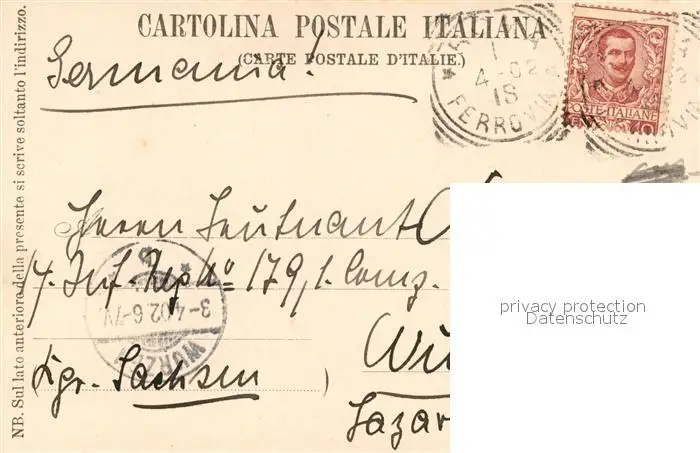 CARTOLINA POSTALE ITALIANA
(CARTE POSTALE D'ITALIE.)
Germania!
NB. Sul lato anteriore della presente si scrive soltanto l'indirizzo.
1
4-02
1S
FERROVIA
POSTE ITALIANE
Herrn Leutnant
14. Inf. Reg No 179, 1. Comp.
3-4.02.6-7V.
WURZ
Wu
Kgr. Sachsen
Lazar
privacy protection
Datenschutz